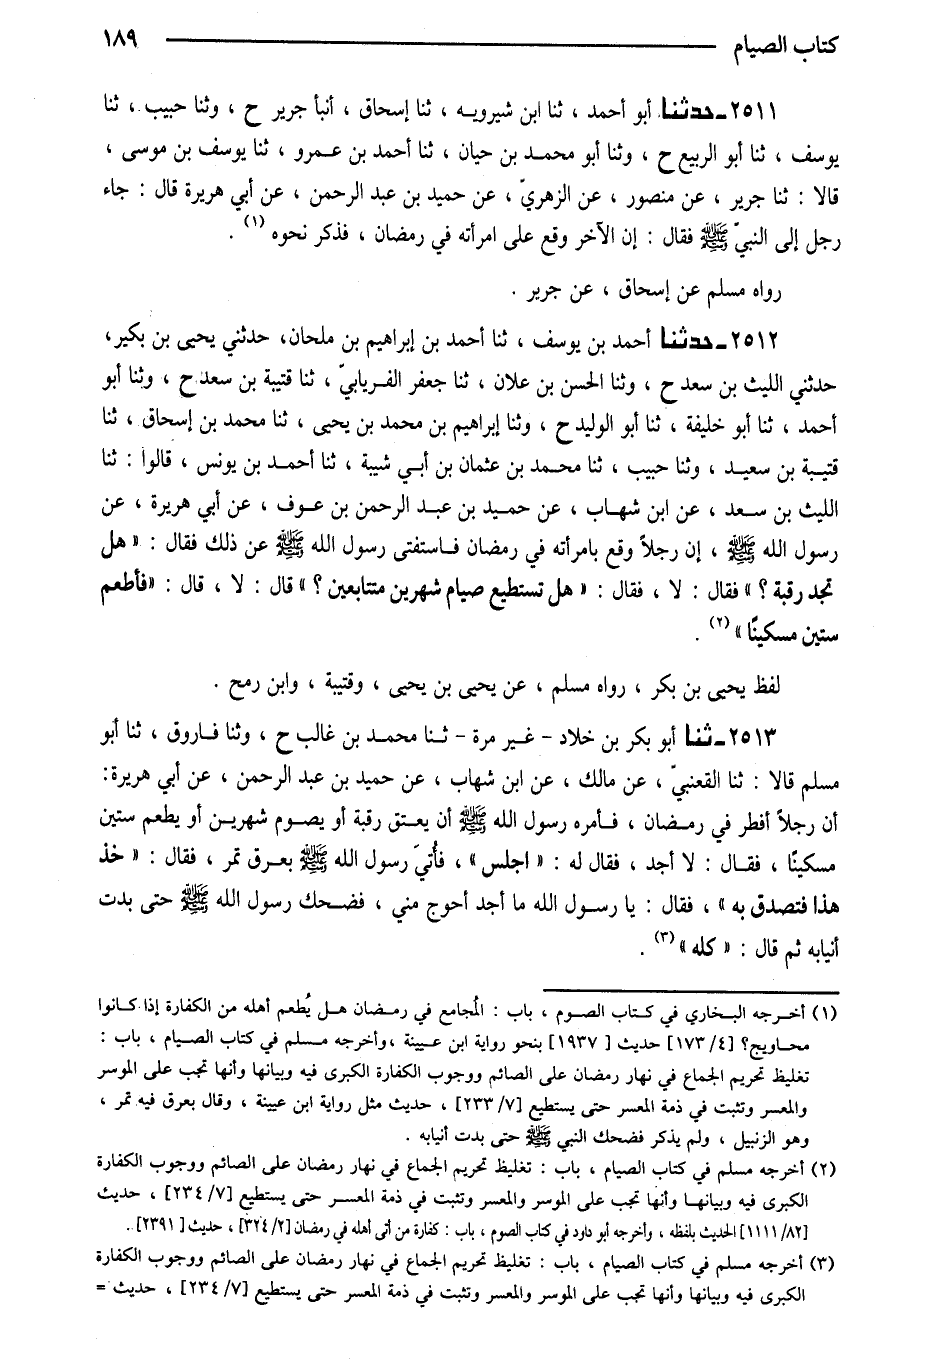 كتاب الصيام ١٨٩
٢٥١١ـ حدثنا أبو أحمد ، ثنا ابن شيرويه ، ثنا إسحاق ، أنبأ جرير ح ، وثنا حبيب ، ثنا
يوسف ، ثنا أبو الربيع ح ، وثنا أبو محمد بن حيان ، ثنا أحمد بن عمرو ، ثنا يوسف بن موسى ،
قالا : ثنا جرير ، عن منصور ، عن الزهريّ ، عن حميد بن عبد الرحمن ، عن أبي هريرة قال : جاء
رجل إلى النبيّ ﷺ فقال : إن الآخر وقع على امرأته في رمضان ، فذكر نحوه (١) .
رواه مسلم عن إسحاق ، عن جرير .
٢٥١٢ـ حدثنا أحمد بن يوسف ، ثنا أحمد بن إبراهيم بن ملحان، حدثني يحيى بن بكير،
حدثني الليث بن سعد ح ، وثنا الحسن بن علان ، ثنا جعفر الفريابيّ ، ثنا قتيبة بن سعد ح ، وثنا أبو
أحمد ، ثنا أبو خليفة ، ثنا أبو الوليد ح ، وثنا إبراهيم بن محمد بن يحيى ، ثنا محمد بن إسحاق ، ثنا
قتيبة بن سعيد ، وثنا حبيب ، ثنا محمد بن عثمان بن أبي شيبة ، ثنا أحمد بن يونس ، قالوا : ثنا
الليث بن سعد ، عن ابن شهاب ، عن حميد بن عبد الرحمن بن عوف ، عن أبي هريرة ، عن
رسول الله ﷺ ، إن رجلاً وقع بامرأته في رمضان فاستفتى رسول الله ﷺ عن ذلك فقال : « هل
تجد رقبة ؟ » فقال : لا ، فقال : « هل تستطيع صيام شهرين متتابعين ؟ » قال : لا ، قال : «فأطعم
ستين مسكينًا » (٢) .
لفظ يحيى بن بكر ، رواه مسلم ، عن يحيى بن يحيى ، وقتيبة ، وابن رمح .
٢٥١٣ـ ثنا أبو بكر بن خلاد - غير مرة - ثنا محمد بن غالب ح ، وثنا فاروق ، ثنا أبو
مسلم قالا : ثنا القعنبيّ ، عن مالك ، عن ابن شهاب ، عن حميد بن عبد الرحمن ، عن أبي هريرة:
أن رجلاً أفطر في رمضان ، فأمره رسول الله ﷺ أن يعتق رقبة أو يصوم شهرين أو يطعم ستين
مسكينًا ، فقال : لا أجد ، فقال له : « اجلس » ، فأُتيَ رسول الله ﷺ بعرق تمر ، فقال : « خذ
هذا فتصدق به » ، فقال : يا رسول الله ما أجد أحوج مني ، فضحك رسول الله ﷺ حتى بدت
أنيابه ثم قال : « كله » (٣) .
(١) أخرجه البخاري في كتاب الصوم ، باب : المُجامع في رمضان هل يُطعم أهله من الكفارة إذا كانوا
محاويج؟ [٤/ ١٧٣] حديث [ ١٩٣٧] بنحو رواية ابن عيينة ،وأخرجه مسلم في كتاب الصيام ، باب :
تغليظ تحريم الجماع في نهار رمضان على الصائم ووجوب الكفارة الكبرى فيه وبيانها وأنها تجب على الموسر
والمعسر وتثبت في ذمة المعسر حتى يستطيع [٧/ ٢٣٣] ، حديث مثل رواية ابن عيينة ، وقال بعرق فيه تمر ،
وهو الزنبيل ، ولم يذكر فضحك النبي ﷺ حتى بدت أنيابه .
(٢) أخرجه مسلم في كتاب الصيام ، باب : تغليظ تحريم الجماع في نهار رمضان على الصائم ووجوب الكفارة
الكبرى فيه وبيانها وأنها تجب على الموسر والمعسر وتثبت في ذمة المعسر حتى يستطيع [٧/ ٢٣٤] ، حديث
[٨٢/ ١١١١] الحديث بلفظه ، وأخرجه أبو داود في كتاب الصوم ، باب : كفارة من أتى أهله في رمضان [٢/ ٣٢٤] ، حديث [ ٢٣٩١] .
(٣) أخرجه مسلم في كتاب الصيام ، باب : تغليظ تحريم الجماع في نهار رمضان على الصائم ووجوب الكفارة
الكبرى فيه وبيانها وأنها تجب على الموسر والمعسر وتثبت في ذمة المعسر حتى يستطيع [٧/ ٢٣٤] ، حديث =